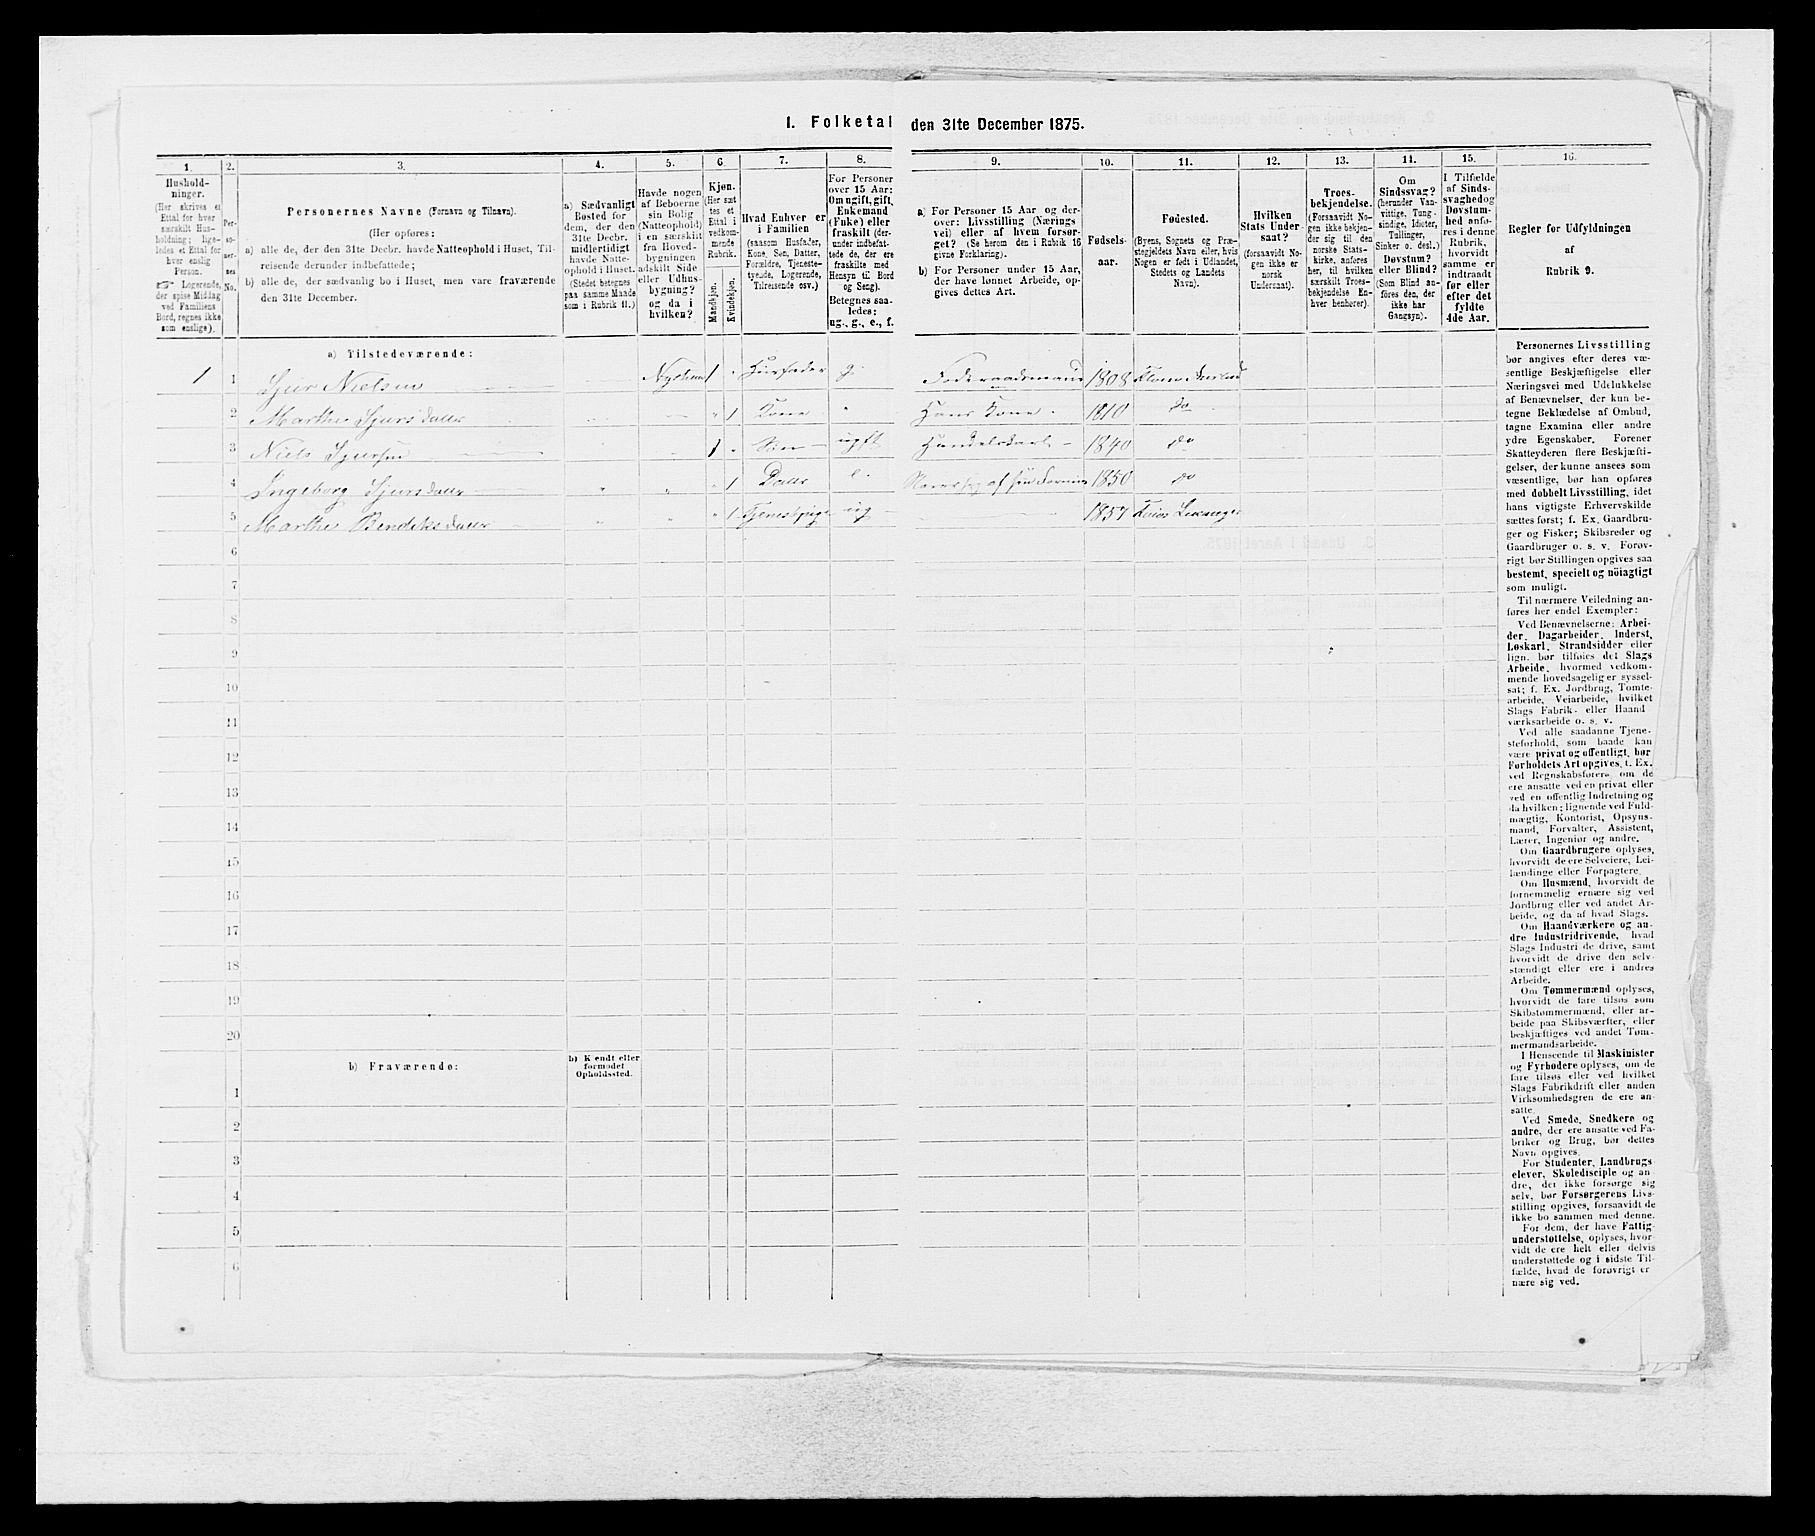 1. Folketal den 31te December 1875.
1.
Hushold-
ninger.
(Her skrives et
Ettal for hver
særskilt Hus-
holdning; lige-
ledes et Ettal for
hver enslig
Person.
☞ Logerende,
der spise Middag
ved Familiens
Bord, regnes ikke
som enslige).
2.
Per-
so-
ner-
nes
No.
3.
Personernes Navne (Fornavn og Tilnavn).
(Her opføres:
a) alle de, der den 31te Decbr. havde Natteophold i Huset, Til-
reisende derunder indbefattede;
b) alle de, der sædvanlig bo i Huset, men vare fraværende
den 31te December.
4.
a) Sædvanligt
Bosted for
dem, der den
31te Decbr.
midlertidigt
havde Natte-
ophold i Huset.
(Stedet betegnes
paa samme Maade
som i Rubrik 11.)
5.
Havde nogen
af Beboerne
sin Bolig
(Natteophold)
i en særskilt
fra Hoved-
bygningen
adskilt Side
eller Udhus-
bygning?
og da i
hvilken?
6.
Kjøn.
(Her sæt
tes et
Ettal i
vedkom-
mende
Rubrik.
Mandkjøn.
Kvindekjøn.
7.
Hvad Enhver er
i Familien
(saasom Husfader,
Kone, Søn, Datter,
Forældre, Tjeneste-
tyende, Logerende,
Tilreisende osv.)
8.
For Personer
over 15 Aar:
Om ugift, gift,
Enkemand
(Enke) eller
fraskilt (der-
under indbefat-
tede de, der ere
fraskilte med
Hensyn til Bord
og Seng).
Betegnes saa-
ledes:
ug., g., e., f.
9.
a) For Personer 15 Aar og der-
over: Livsstilling (Nærings
vei) eller af hvem forsør-
get? (Se herom den i Rubrik 16
givne Forklaring).
b) For Personer under 15 Aar,
der have lønnet Arbeide, op-
gives dettes Art.
10.
Fødsels-
aar.
11.
Fødested.
(Byens, Sognets og Præ-
stegjeldets Navn eller, hvis
Nogen er født i Udlandet,
Stedets og Landets
Navn).
12.
Hvilken
Stats Under
saat?
(forsaavidt No-
gen ikke er
norsk
Undersaat).
13.
Troes-
bekjendelse.
(Forsaavidt No-
gen ikke bekjen-
der sig til den
norske Stats-
kirke, anføres
her, til hvilken
særskilt Troes-
bekjendelse En-
hver henhører).
14.
Om
Sindssvag?
(herunder Van-
vittige, Tung-
sindige, Idioter,
Tullinger,
Sinker o. desl.)
Døvstum?
eller Blind?
(Som Blind an-
føres den, der
ikke har
Gangsyn).
15.
I Tilfælde
af Sinds-
svaghed og
Døvstum-
hed anfø-
res i denne
Rubrik,
hvorvidt
samme er
indtraadt
før eller
efter det
fyldte
4de Aar.
16.
Regler for Udfyldningen
af
Rubrik 9.
a) Tilstedeværende:
1 1 Sjur Nielsen 1 Husfader g. Føderaadsmand 1808
2 Marthe Sjursdatter " 1 Kone " Hans Kone 1810 do
3 Niels Sjursen 1 " Søn ugft Handelskarl 1840 do
4 Ingeborg Sjursdatter " " " 1 Datter e. 1850 do
5 Marthe Bendiksdatter " " " 1 Tjenestpige ug 1857 Leikanger
6
7
8
9
10
11
12
13
14
15
16
17
18
19
20
b) Fraværende:
b) Kjendt eller
formodet
Opholdssted.
1
2
3
4
5
6
Personernes Livsstilling
bør angives efter deres væ-
sentlige Beskjæftigelse eller
Næringsvei med Udelukkelse
af Benævnelser, der kun be-
tegne Beklædelse af Ombud,
tagne Examina eller andre
ydre Egenskaber. Forener
Skatteyderen flere Beskjæfti-
gelser, der kunne ansees som
væsentlige, bør han opføres
med dobbelt Livsstilling, idet
hans vigtigste Erhvervskilde
sættes først; f. Ex. Gaardbru-
ger og Fisker; Skibsreder og
Gaardbruger o. s. v. Forøv-
rigt bør Stillingen opgives saa
bestemt, specielt og nöiagtigt
som muligt.
Til nærmere Veiledning an-
føres her endel Exempler:
Ved Benævnelserne: Arbei-
der, Dagarbeider, Inderst,
Løskarl, Strandsidder eller
lign. bør tilføies det Slags
Arbeide, hvormed vedkom-
mende hovedsagelig er syssel-
sat; f. Ex. Jordbrug, Tomte-
arbeide, Veiarbeide, hvilket
Slags Fabrik- eller Haand-
værksarbeide o. s. v.
Ved alle saadanne Tjene-
steforhold, som baade kan
være privat og offentligt, bør
Forholdets Art opgives, t. Ex.
ved Regnskabsførere, om de
ere ansatte ved en privat eller
ved en offentlig Indretning og
da hvilken; lignende ved Fuld-
mægtig, Kontorist, Opsyns-
mand, Forvalter, Assistent,
Lærer, Ingeniør og andre.
Om Gaardbrugere oplyses,
hvorvidt de ere Selveiere, Lei-
lændinge eller Forpagtere.
Om Husmænd, hvorvidt de
fornemmelig ernære sig ved
Jordbrug eller ved andet Ar-
beide, og da af hvad Slags.
Om Haandværkere og an-
dre Industridrivende, hvad
Slags Industri de drive, samt
hvorvidt de drive den selv-
stændigt eller ere i andres
Arbeide.
Om Tømmermænd oplyses,
hvorvidt de fare tilsøs som
Skibstømmermænd, eller ar-
beide paa Skibsværfter, eller
beskjæftiges ved andet Tøm-
mermandsarbeide.
I Henseende til Maskinister
og Fyrbødere oplyses, om de
fare tilsøs eller ved hvilket
Slags Fabrikdrift eller anden
Virksomhedsgren de ere an-
satte.
Ved Smede, Snedkere og
andre, der ere ansatte ved Fa-
briker og Brug, bør dettes
Navn opgives.
For Studenter, Landbrugs
elever, Skoledisciple og an-
dre, der ikke forsørge sig
selv, bør Forsørgerens Livs-
stilling opgives, forsaavidt de
ikke bo sammen med denne.
For dem, der have Fattig-
understøttelse, oplyses, hvor-
vidt de ere helt eller delvis
understøttede og i sidste Til-
fælde, hvad de forøvrigt er
nære sig ved.